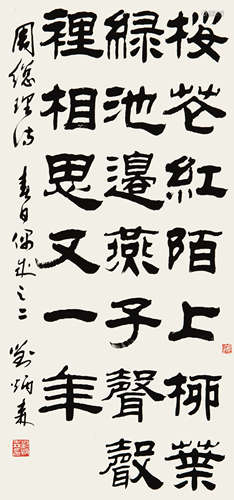 桜花紅陌上柳葉
緑池邊燕子聲聲
裡相思又一年
周總理詩 春日偶成之二 劉炳森